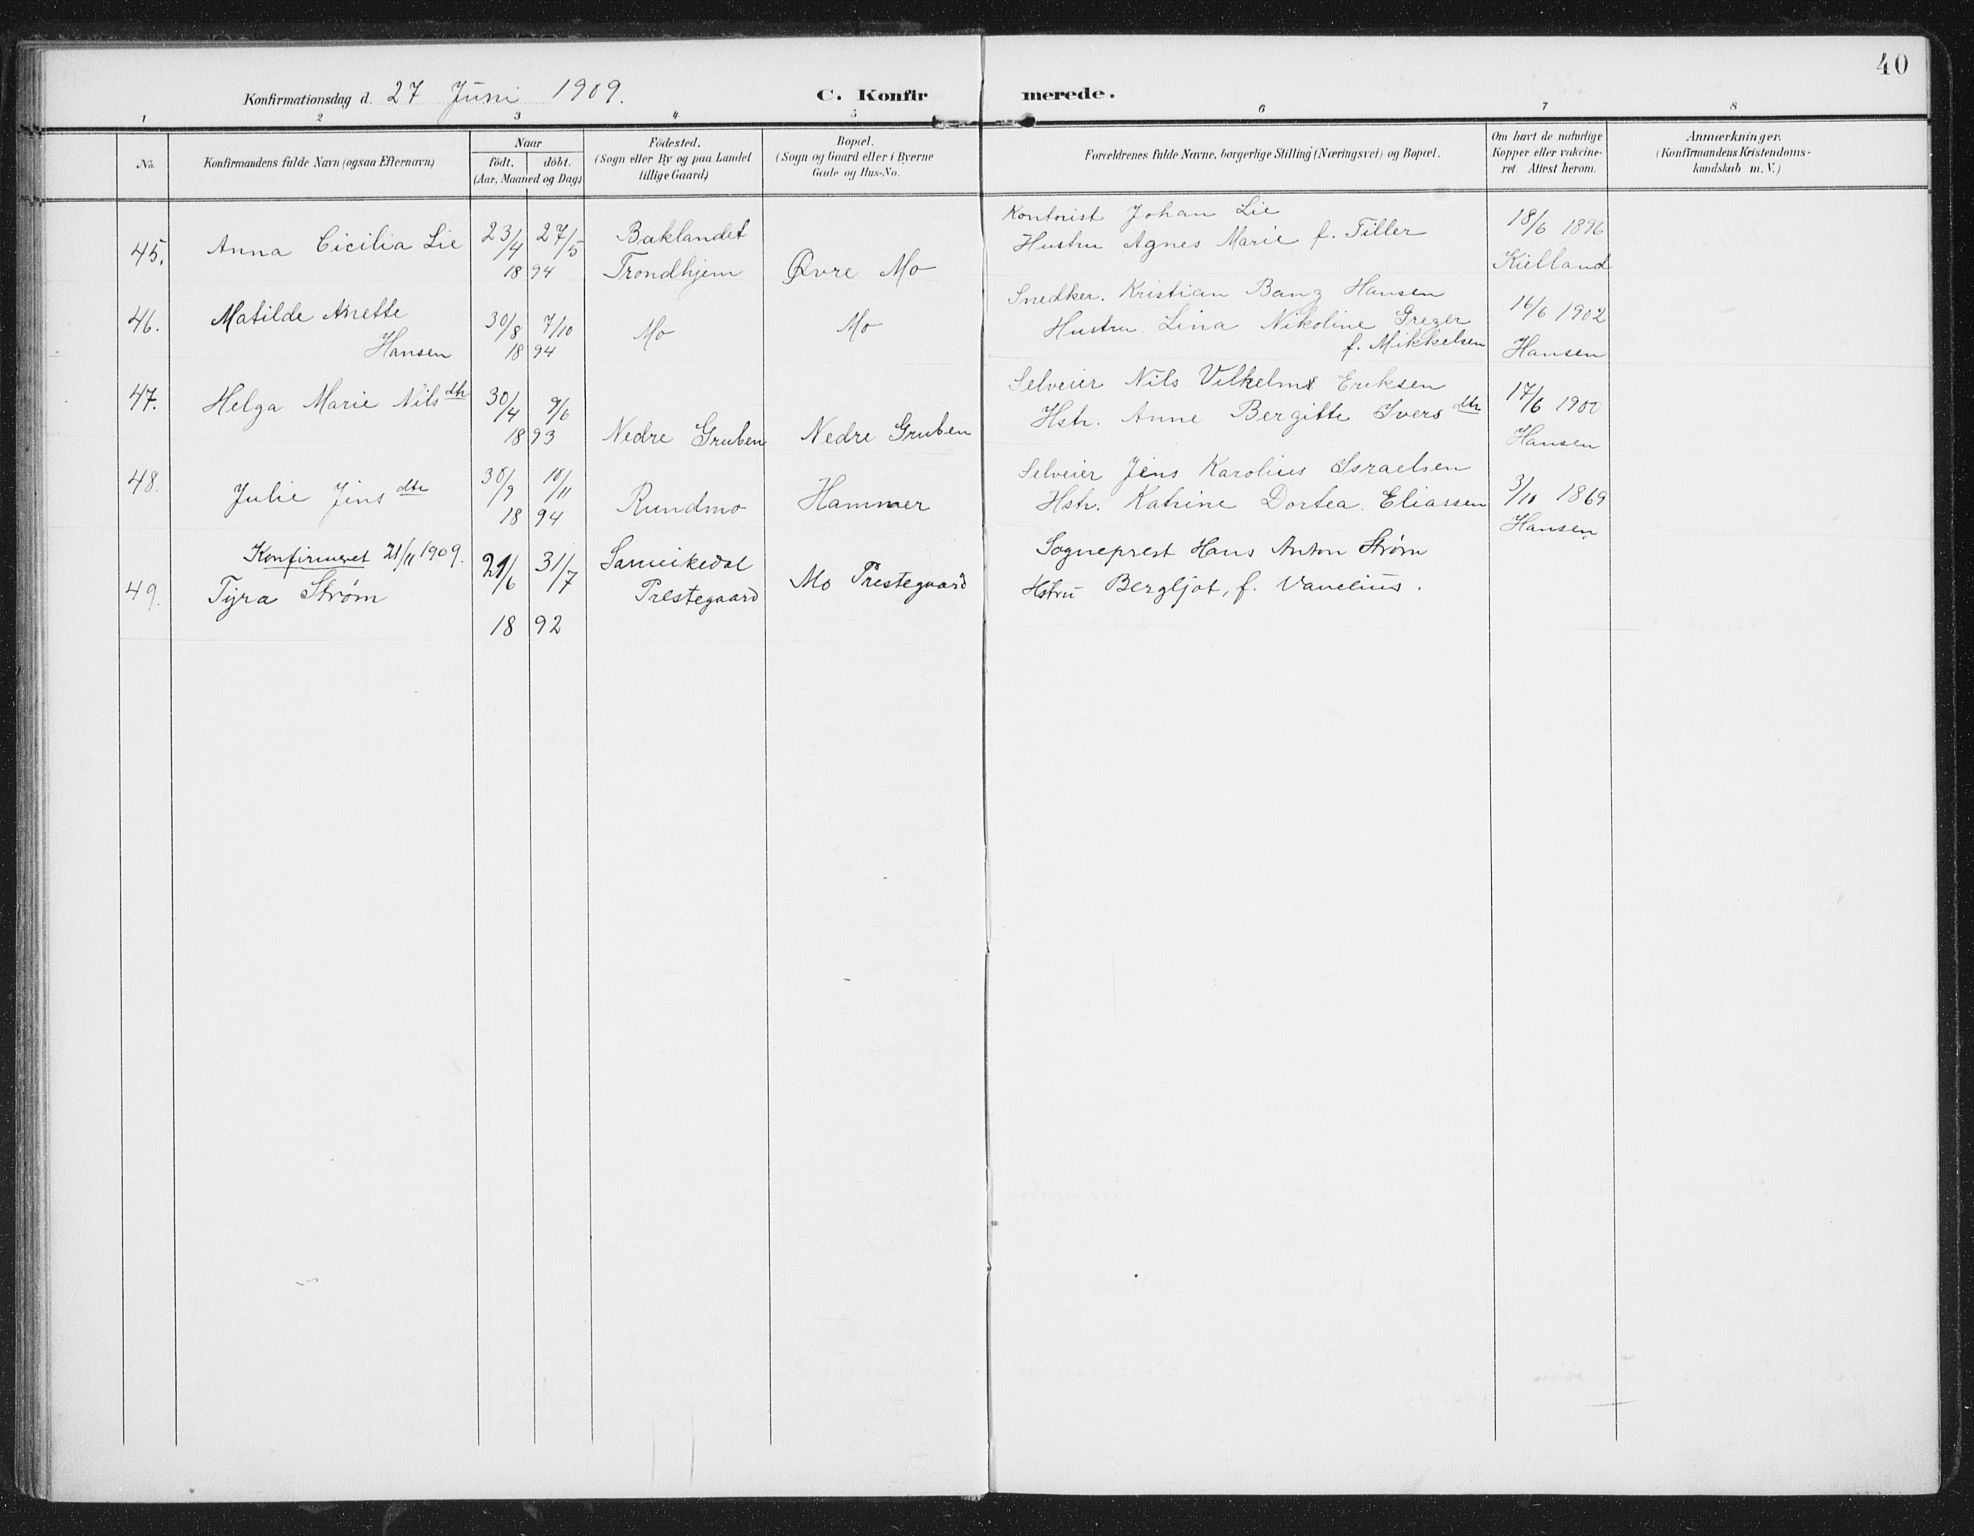 40
Konfirmationsdag d. 27 Juni 1909.
C. Konfirmerede.
1 2 3 4 5 6 7 8
No.
Konfirmandens fulde Navn (ogsaa Efternavn)
Naar
födt. döbt.
(Aar, Maaned og Dag)
Födested.
(Sogn eller By og paa Landet
tillige Gaard)
Bopæl.
(Sogn og Gaard eller i Byerne
Gade og Hus-No.
Forældrenes fulde Navne, borgerlige Stilling (Næringsvei) og Bopæl.
Om havt de naturlige
Kopper eller vakcine-
ret Attest herom.
Anmærkninger.
(Konfirmandens Kristendoms-
kundskab m. V.)
45. Anna Cicilia Lie 23/4 27/5 1894 Baklandet
Trondhjem Øvre Mo
Kontorist Johan Lie
Hustru Agnes Marie f. Tiller
18/6 1896
Kielland
46. Matilde Anette
Hansen 30/8 7/10 1894 Mo Mo
Snedker. Kristian Bang Hansen
Hustru Lina Nikoline Greger
f. Mikkelsen
16/6 1902
Hansen
47. Helga Marie Nilsdtr 30/4 9/6 1893 Nedre Gruben Nedre Gruben
Selveier Nils Vilhelm Eriksen
Hstr. Anne Bergitte Iversdtr
17/6 1900
Hansen
48. Julie Jensdtr 30/9 10/11 1894 Rundmo Hammer
Selveier Jens Karolius Israelsen
Hstr. Katrine Dortea Eliassen
3/11 1869
Hansen
Konfirmeret 21/11 1909.
49. Tyra Strøm 21/6 31/7 1892
Prestegaard Mo Prestegaard
Sogneprest Hans Anton Strøm
Hstru Bergljot, f. Vanelius.